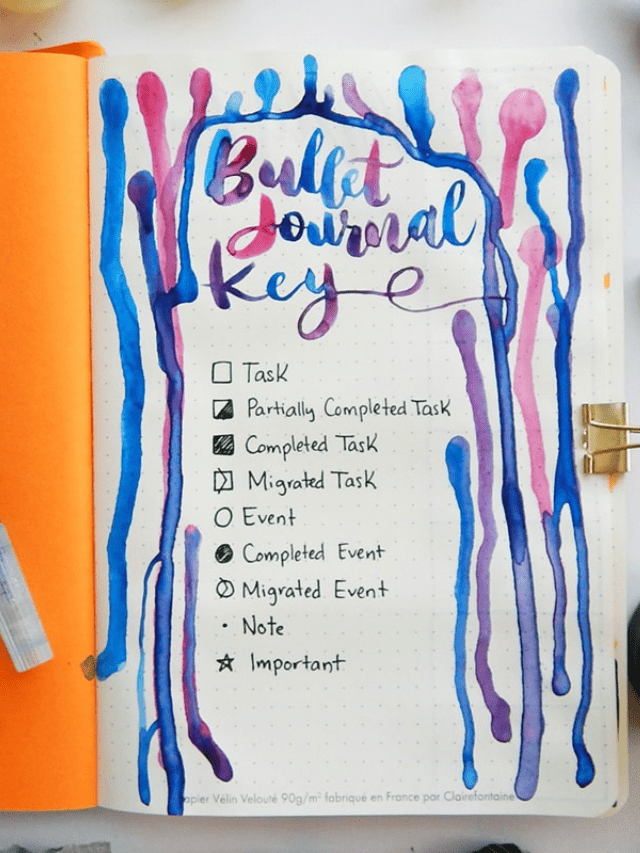 Bullet
Journal
Key
Task
Partially Completed Task
Completed Task
Migrated Task
Event
Completed Event
Migrated Event
Note
Important
Vélin Velouté 90g/m² fabriqué en France par Clairefontaine